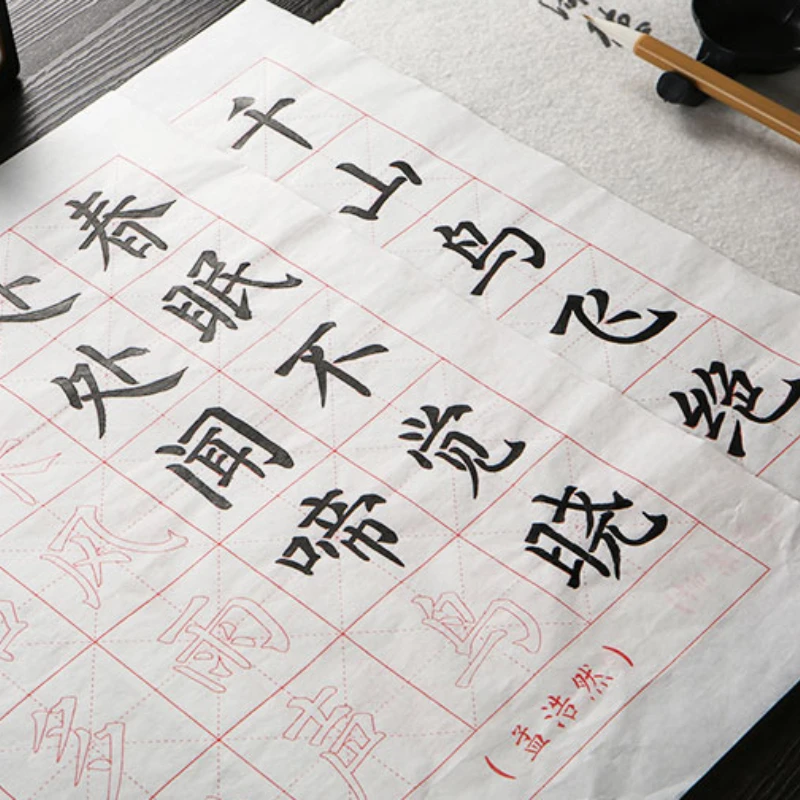 千山鸟飞绝
春眠不觉晓
处处闻啼鸟
风雨声
多
(孟浩然)